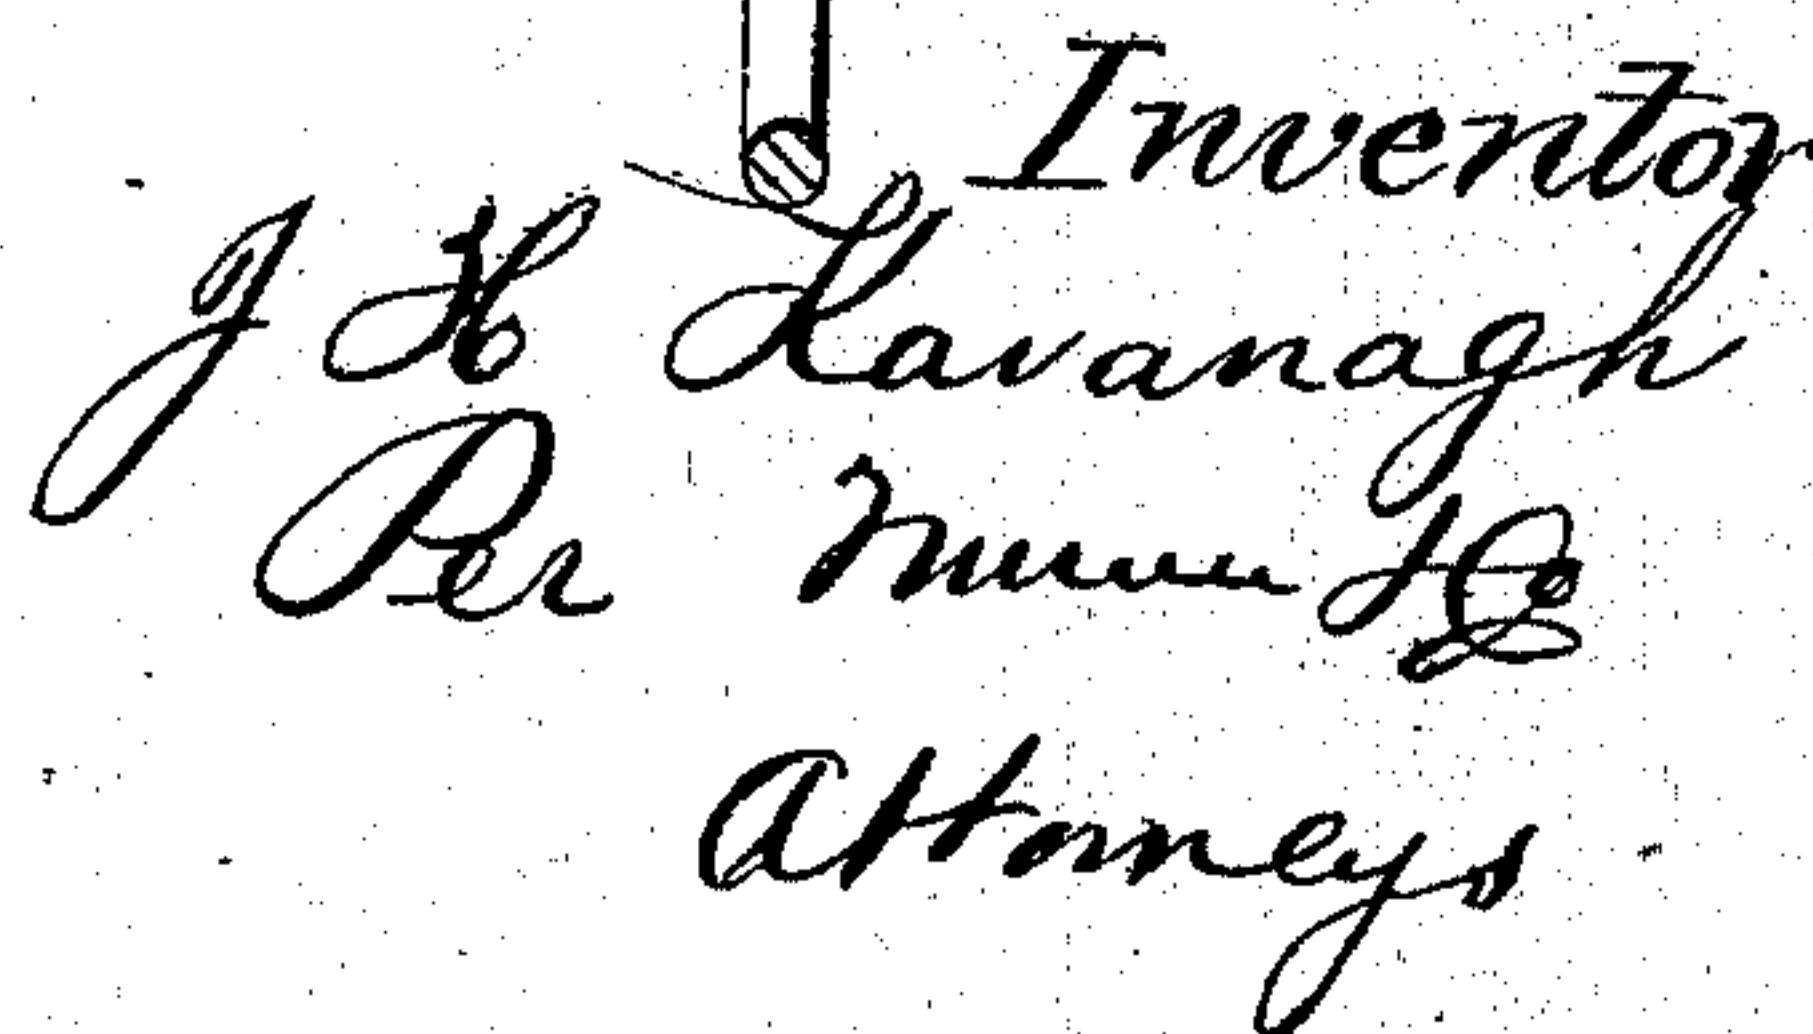 Inventor
J H Kavanagh
Per Munn & Co
Attorneys